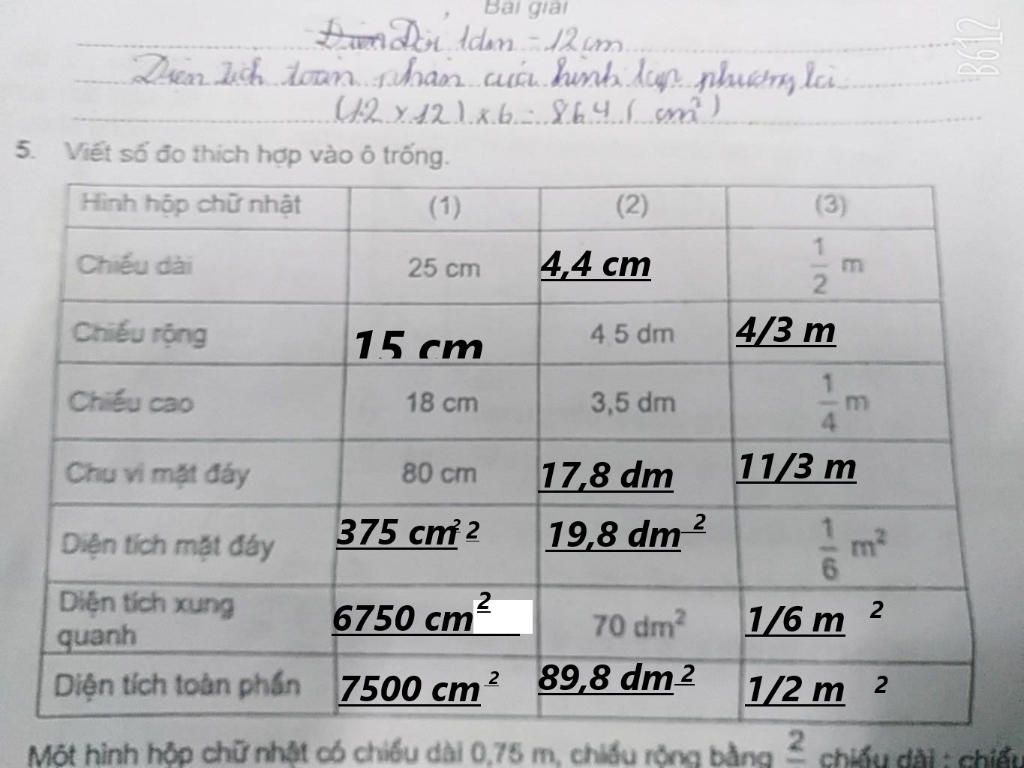 Bài giải
Đổi 1dm = 12cm
Diện tích toàn phần của hình lập phương là:
(12 x 12) x 6 = 864 (cm²)
5. Viết số đo thích hợp vào ô trống.
Hình hộp chữ nhật (1) (2) (3)
Chiều dài 25 cm 4,4 cm 1/2 m
Chiều rộng 15 cm 4,5 dm 4/3 m
Chiều cao 18 cm 3,5 dm 1/4 m
Chu vi mặt đáy 80 cm 17,8 dm 11/3 m
Diện tích mặt đáy 375 cm² 2 19,8 dm 2 1/6 m²
Diện tích xung quanh 6750 cm 2 70 dm² 1/6 m 2
Diện tích toàn phần 7500 cm 2 89,8 dm 2 1/2 m 2
Một hình hộp chữ nhật có chiều dài 0,75 m, chiều rộng bằng 2 chiều dài ; chiều
B612